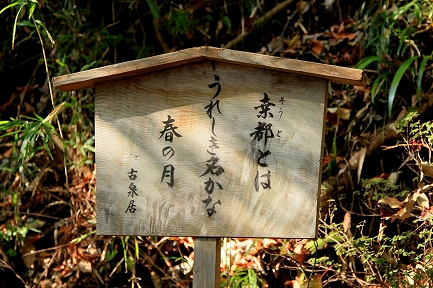 そうと
桒都とは
うれしき名かな
春の月
古泉居